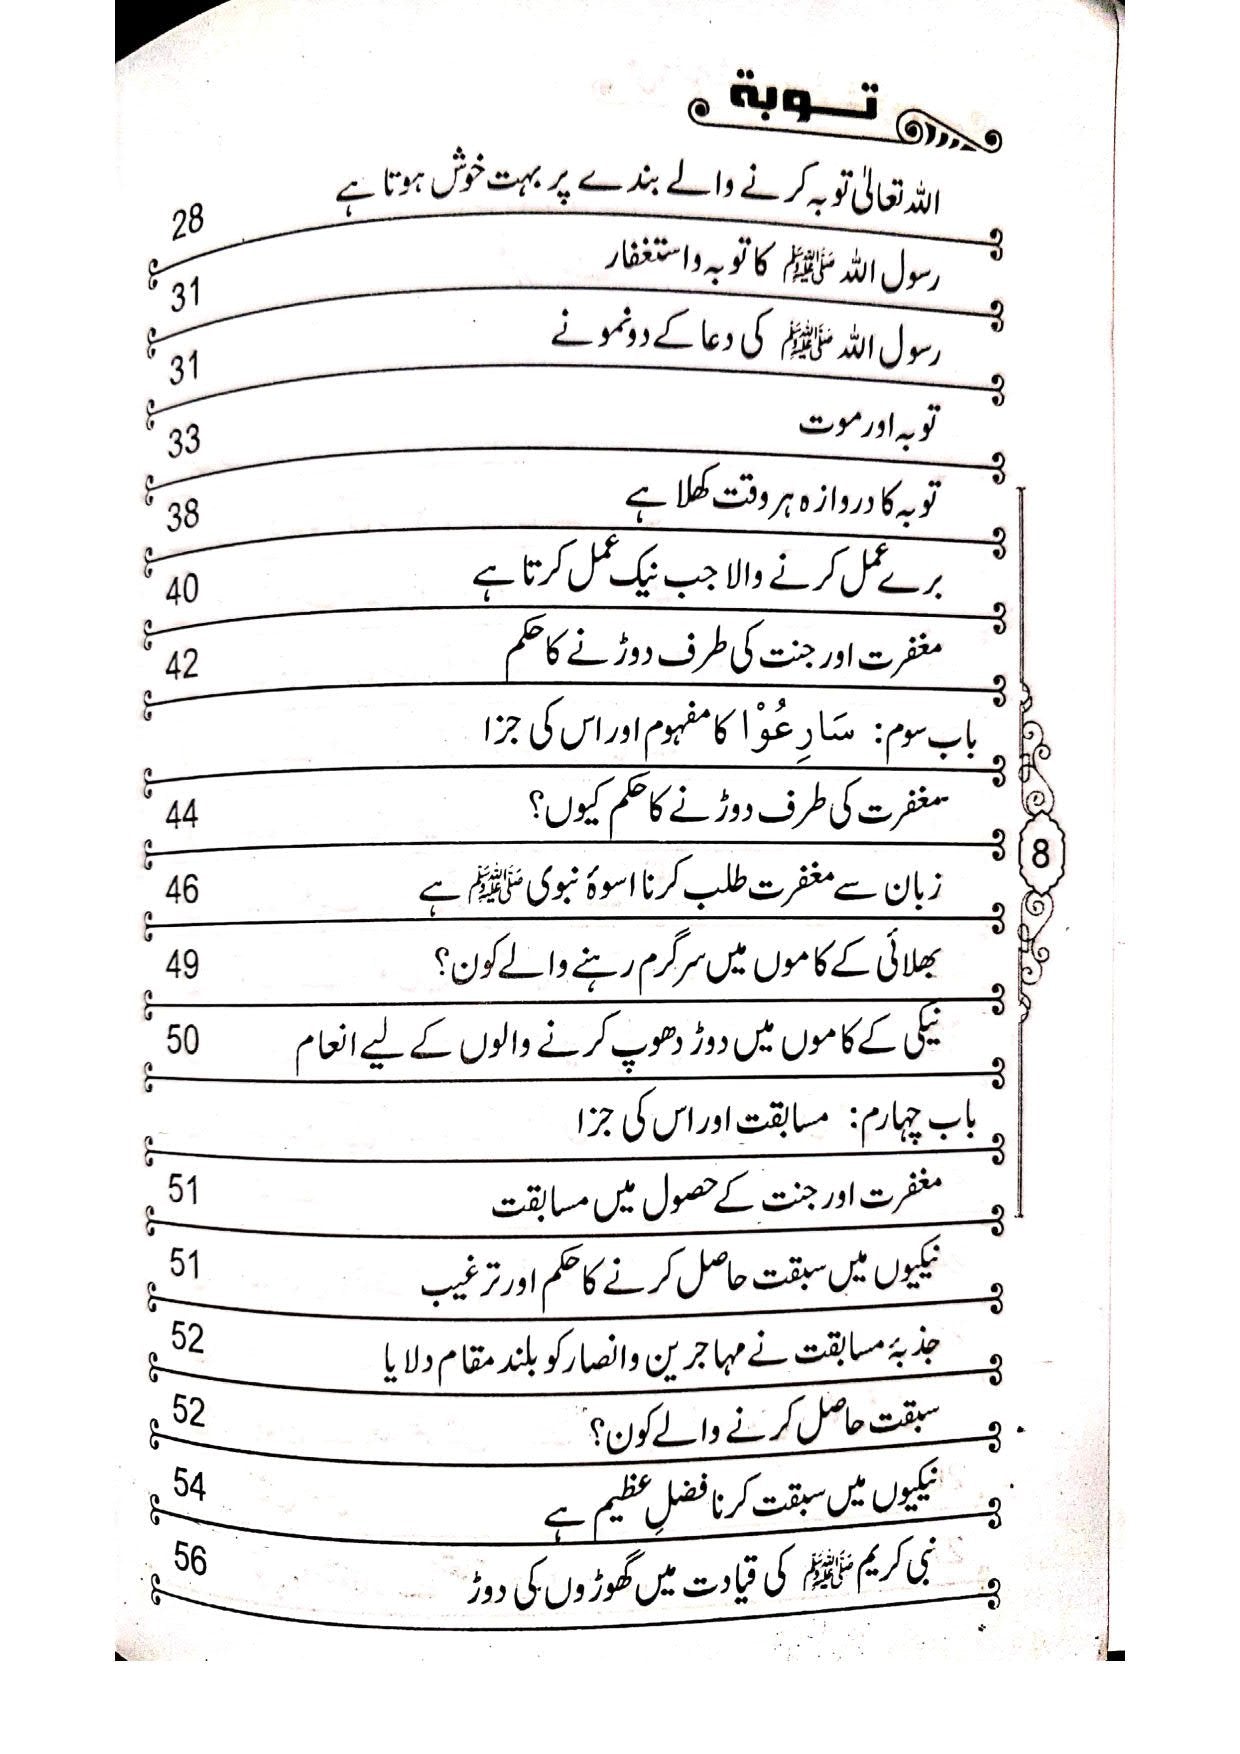 توبة
اللہ تعالیٰ توبہ کرنے والے بندے پر بہت خوش ہوتا ہے 28
رسول اللہ ﷺ کا توبہ واستغفار 31
رسول اللہ ﷺ کی دعا کے دو نمونے 31
توبہ اور موت 33
توبہ کا دروازہ ہر وقت کھلا ہے 38
برے عمل کرنے والا جب نیک عمل کرتا ہے 40
مغفرت اور جنت کی طرف دوڑنے کا حکم 42
باب سوم: سَارِعُوْا کا مفہوم اور اس کی جزا
مغفرت کی طرف دوڑنے کا حکم کیوں؟ 44
زبان سے مغفرت طلب کرنا اسوۂ نبوی ﷺ ہے 46
بھلائی کے کاموں میں سرگرم رہنے والے کون؟ 49
نیکی کے کاموں میں دوڑ دھوپ کرنے والوں کے لیے انعام 50
باب چہارم: مسابقت اور اس کی جزا
مغفرت اور جنت کے حصول میں مسابقت 51
نیکیوں میں سبقت حاصل کرنے کا حکم اور ترغیب 51
جذبۂ مسابقت نے مہاجرین وانصار کو بلند مقام دلایا 52
سبقت حاصل کرنے والے کون؟ 52
نیکیوں میں سبقت کرنا فضلِ عظیم ہے 54
نبی کریم ﷺ کی قیادت میں گھوڑوں کی دوڑ 56
8